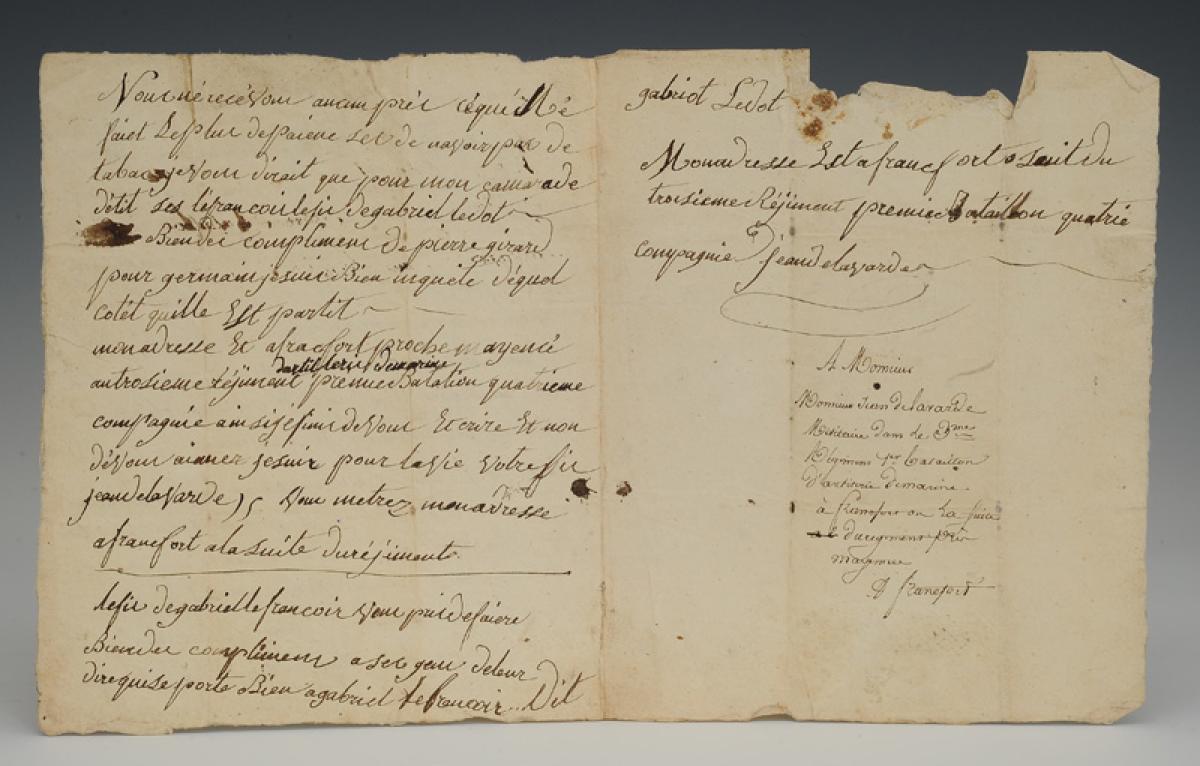 Nous né recé Vons aucun prés cé qui Mé
fait Le plus de paiene ses de navoir pas de
tabac je Vous dirait que pour mon camarade
détit ses lefrancoi le fis de gabriel ledot
Bien des compliment de pierre girard
pour germain je suis Bien inquiete de quel
cotét quille Est partit
mon adresse Et a fracfort proche mayencé
dartillerie demarine
au trosieme réjiment premié Batalion quatrieme
compagnié ainsi jé finis de Vous Ecrire Et non
dé Vous aimer je suis pour la Vie Votre fis
jean de la Varde Vous metrez mon adresse
a francfort a la Suite du réjiment
le fis de gabriel lefrancoir Vous pris de faiere
Bien des compliment a ses gens de leur
dire qui se porte Bien a gabriel lefrancoir Dit
gabriot Ledot
Mon adresse Est a francfort suit du
troisieme Réjiment premié Bataillon quatrié
compagnie Jean de la Varde
A Monsieur
Monsieur Jean de la varde
Militaire dans le 3me
Régiment 1er bataillon
d'artilerie de marine
à francfort ou a la suite
du regiment près
mayence
A francfort